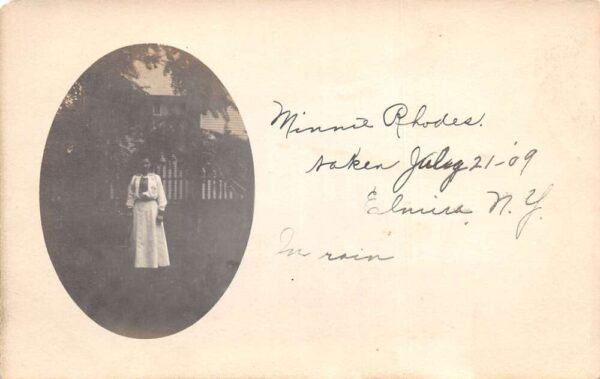 Minnie Rhodes.
taken July 21-'09
Elmira, N.Y.
In rain